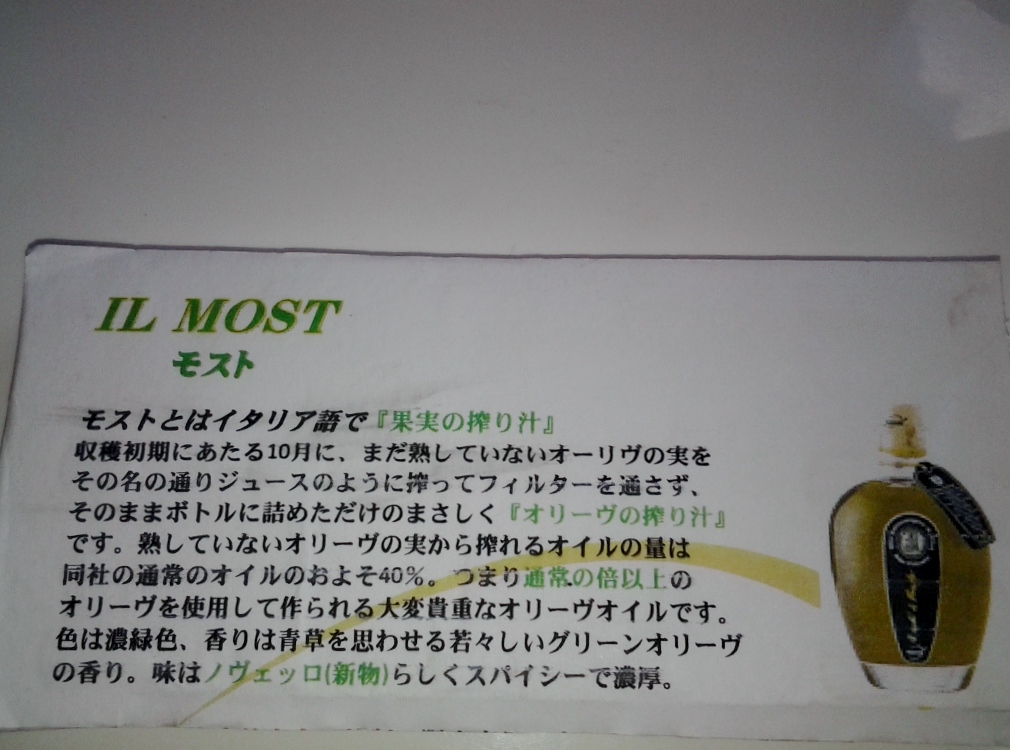 IL MOST
モスト
モストとはイタリア語で『果実の搾り汁』
収穫初期にあたる10月に、まだ熟していないオーリヴの実を
その名の通りジュースのように搾ってフィルターを通さず、
そのままボトルに詰めただけのまさしく『オリーヴの搾り汁』
です。熟していないオリーヴの実から搾れるオイルの量は
同社の通常のオイルのおよそ40%。つまり通常の倍以上の
オリーヴを使用して作られる大変貴重なオリーヴオイルです。
色は濃緑色、香りは青草を思わせる若々しいグリーンオリーヴ
の香り。味はノヴェッロ(新物)らしくスパイシーで濃厚。